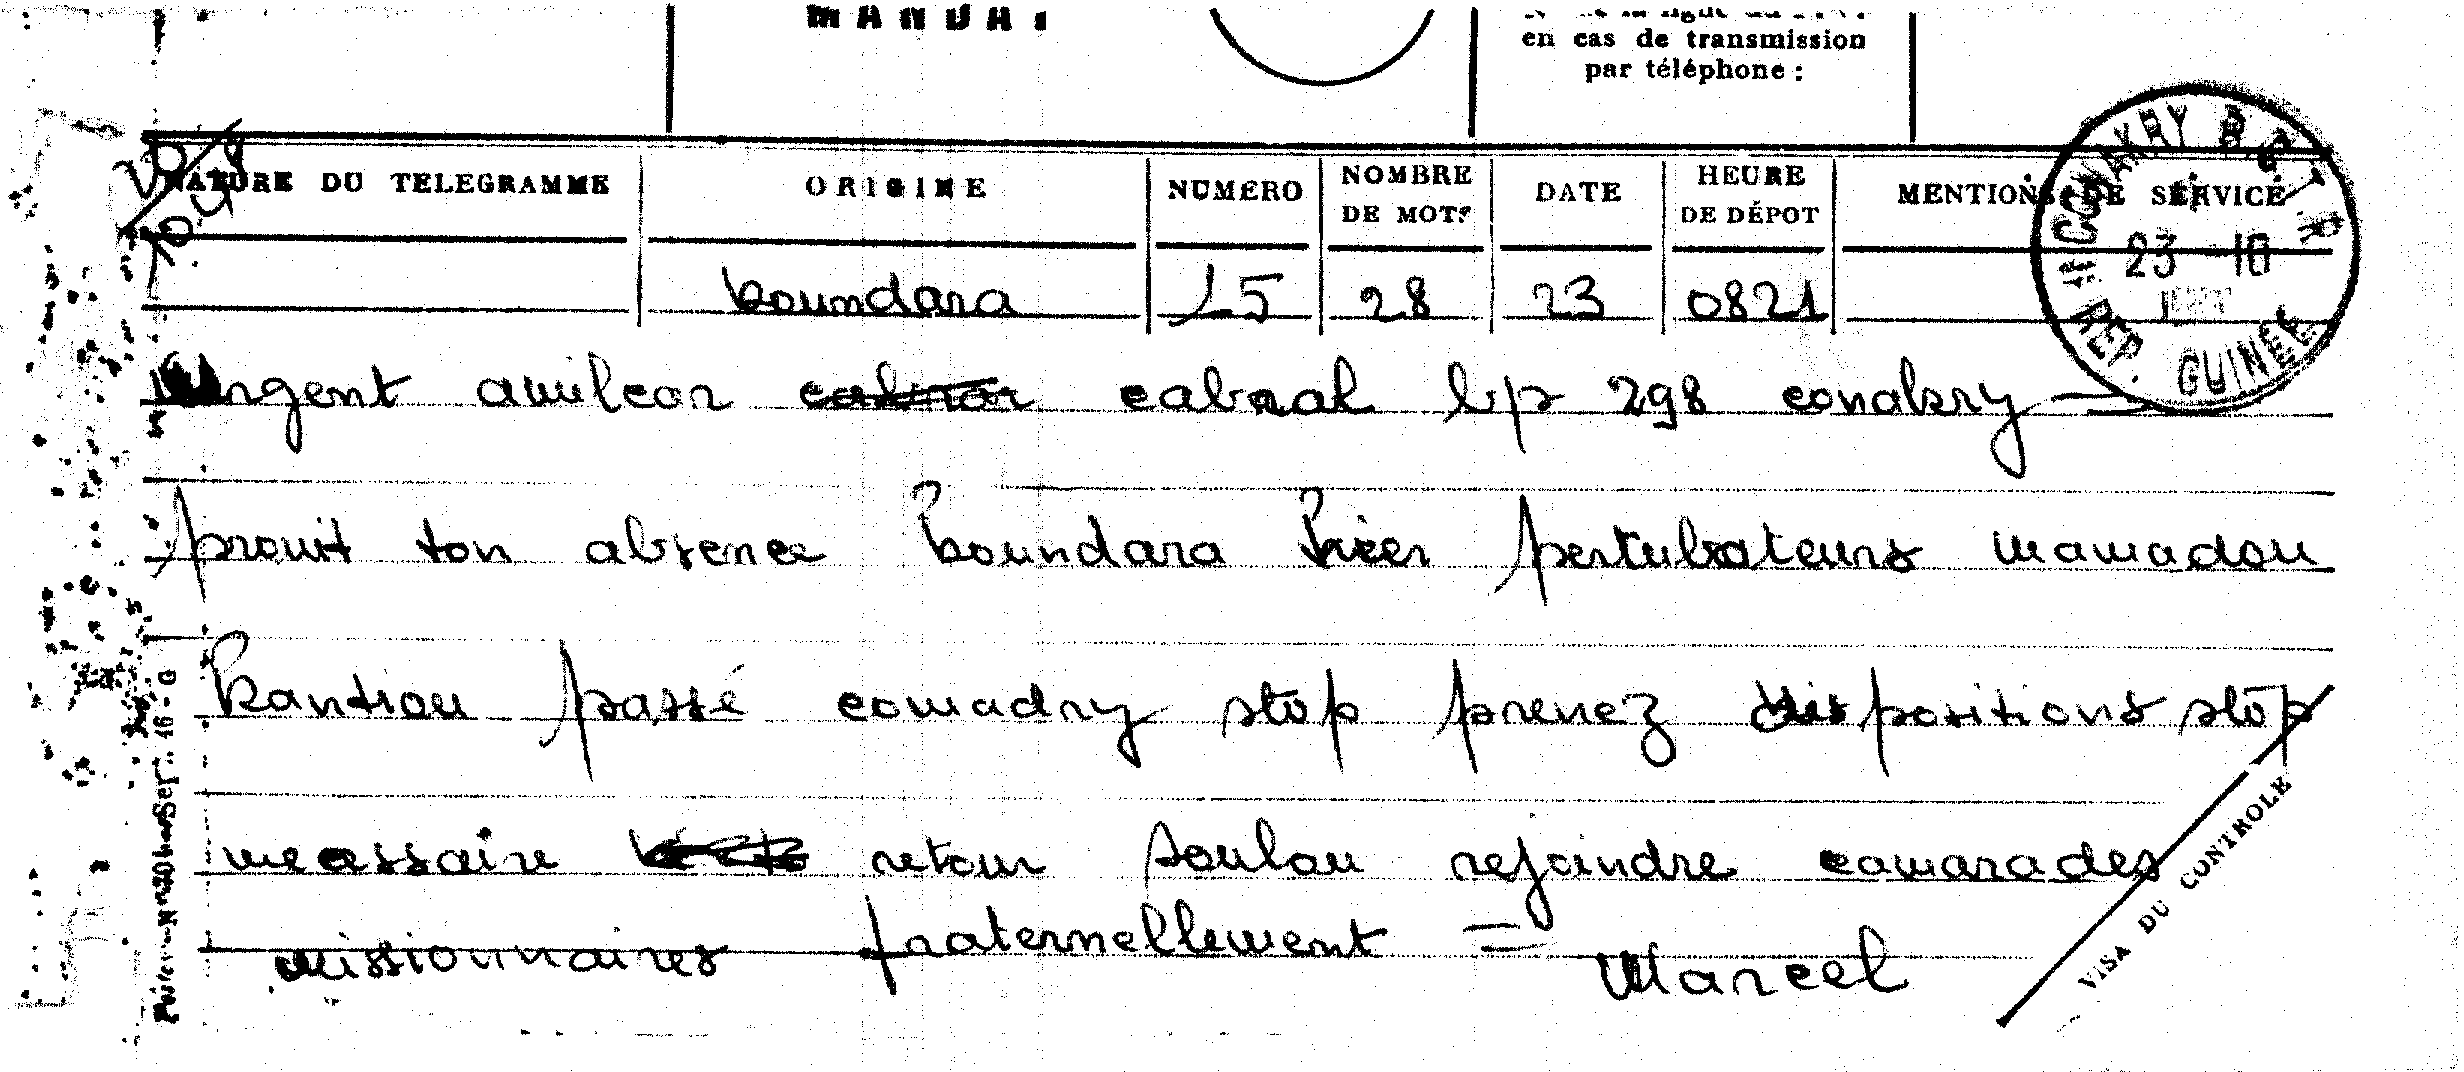 en cas de transmission
par téléphone :
NATURE DU TELEGRAMME ORIGINE NUMERO NOMBRE DE MOTS DATE HEURE DE DÉPOT MENTIONS DE SERVICE
koundara 15 28 23 0821
CONAKRY REP. GUINEE 23 -10
urgent amilcar cabral bp 298 conakry =
produit ton absence koundara hier pertubateurs mamadou
kantiou passé comadry stop prenez dispositions stop
necessaire retour soulou rejoindre camarades
missionnaires fraternellement =
Marcel
VISA DU CONTROLE